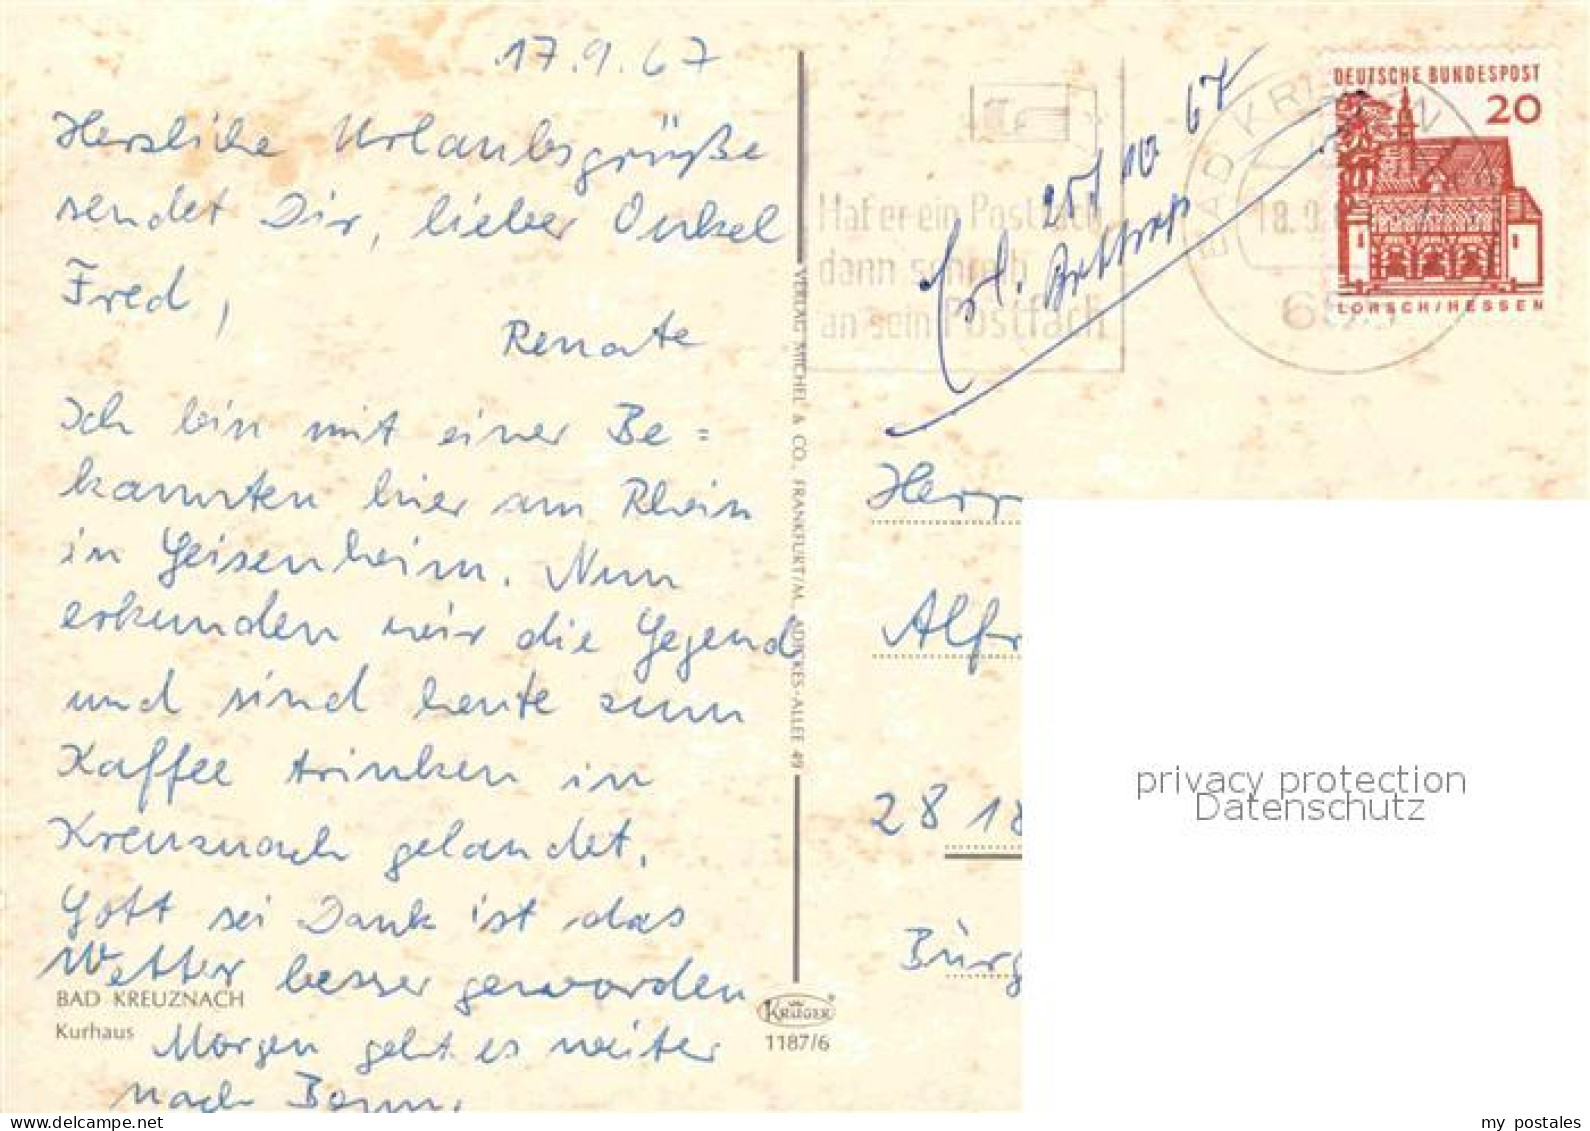 17.9.67
Herzliche Urlaubsgrüße
sendet Dir, lieber Onkel
Fred,
Renate
Ich bin mit einer Be=
kannten hier am Rhein
in Geisenheim. Nun
erkunden wir die Gegend
und sind heute zum
Kaffee trinken in
Kreuznach gelandet.
Gott sei Dank ist das
Wetter besser geworden
Morgen geht es weiter
nach Bonn.
BAD KREUZNACH
Kurhaus
VERLAG MICHEL & CO., FRANKFURT/M., ADICKES-ALLEE 49
KRÜGER
1187/6
Hat er ein Postfach
dann schreib
an sein Postfach
Erl. 25/10 67
BAD KREUZN
18.9.
65
DEUTSCHE BUNDESPOST
20
LORSCH/HESSEN
Herr
Alfr
28 18
Bürg
privacy protection
Datenschutz
my postales